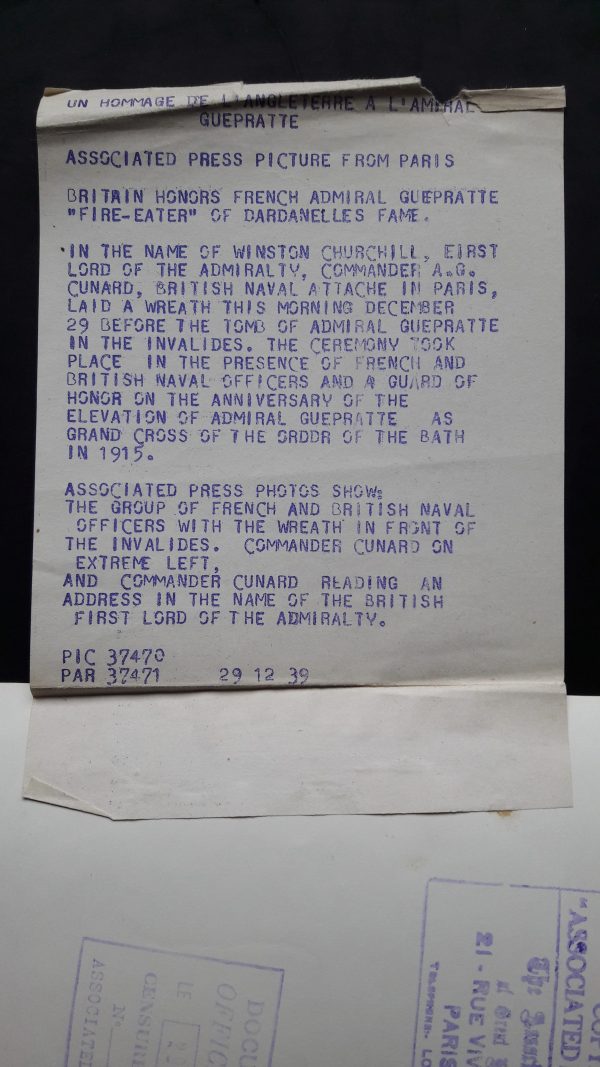 UN HOMMAGE DE L'ANGLETERRE A L'AMIRAL
GUEPRATTE
ASSOCIATED PRESS PICTURE FROM PARIS
BRITAIN HONORS FRENCH ADMIRAL GUEPRATTE
"FIRE-EATER" OF DARDANELLES FAME.
IN THE NAME OF WINSTON CHURCHILL, EIRST
LORD OF THE ADMIRALTY, COMMANDER A.G.
CUNARD, BRITISH NAVAL ATTACHE IN PARIS,
LAID A WREATH THIS MORNING DECEMBER
29 BEFORE THE TOMB OF ADMIRAL GUEPRATTE
IN THE INVALIDES. THE CEREMONY TOOK
PLACE IN THE PRESENCE OF FRENCH AND
BRITISH NAVAL OFFICERS AND A GUARD OF
HONOR ON THE ANNIVERSARY OF THE
ELEVATION OF ADMIRAL GUEPRATTE AS
GRAND CROSS OF THE ORDDR OF THE BATH
IN 1915.
ASSOCIATED PRESS PHOTOS SHOW:
THE GROUP OF FRENCH AND BRITISH NAVAL
OFFICERS WITH THE WREATH IN FRONT OF
THE INVALIDES. COMMANDER CUNARD ON
EXTREME LEFT,
AND COMMANDER CUNARD READING AN
ADDRESS IN THE NAME OF THE BRITISH
FIRST LORD OF THE ADMIRALTY.
PIC 37470
PAR 37471 29 12 39
DOCU
OFFIC
LE
CENSURE
N°
ASSOCIATE
"ASSOCIATED
21 - RUE VIV
PARIS